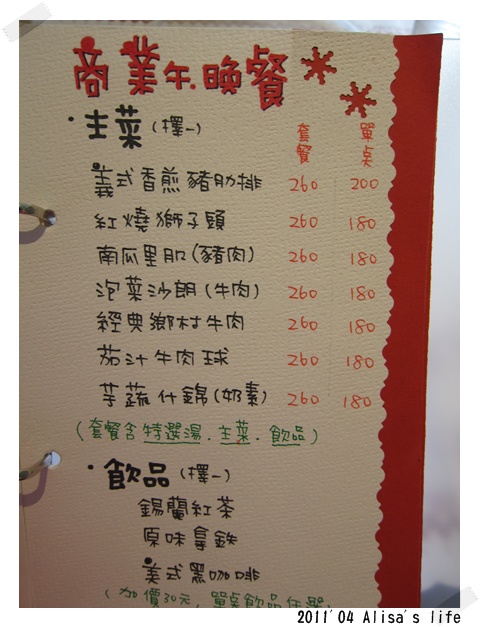 商業午.晚餐
·主菜(擇一)
套餐 單桌
義式香煎豬肋排 260 200
紅燒獅子頭 260 180
南瓜里肌(豬肉) 260 180
泡菜沙朗(牛肉) 260 180
經典鄉村牛肉 260 180
茄汁牛肉球 260 180
芋蔬什錦(奶素) 260 180
(套餐含特選湯.主菜.飲品)
·飲品(擇一)
錫蘭紅茶
原味拿鐵
美式黑咖啡
(加價30元,單桌飲品任選)
2011'04 Alisa's life